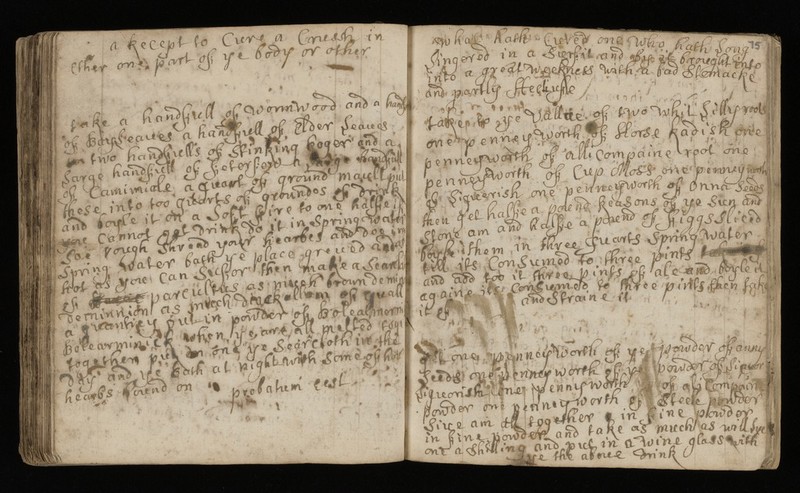 a Recept to Cure a Crush in
Ether one part of ye body or other
take a handfull of wormwood and a hand
of Baysleaves a handfull of Elder Leaves
two handfulls of Stinking and a
Large handfull of handfull
of Camimiole a quart of ground mault put
these into too quarts of groundes of drink
and boyle it on a Soft fire to one halfe if
you Cannot get drink do it in Spring water
Shred your hearbes and
Spring water bath ye place greved as
hot as you Can Suffer then make a Searcloth
of as much
as much of Equall
a quantity put in powder of
when ye are all melted
together put on one ye Searcloth in the
day and ye bath at night with Some of the
hearbs bound on probatum est
15
what hath Cured one who hath Long
Lingered in a Surfit and brought into
into a great weekness with a bad Stomacke
and partly
take ye Vallue of two whit Lilly roots
one penney worth of Horse Radish one
penney worth of alli Compaine root one
penney worth of Cup Moss one penney worth
of Liquerish one penney worth of Anna Seeds
then get halfe a pound Reasons of ye Sun and
Stone am and halfe a pound of Figgs Sliced
boyle them in three quarts Spring water
till its Consumed to three pints
and add too it three pints of ale and boyle it
againe its Consumed to three pints then take
it of and Straine it
one penney worth of ye powder of anny
Seeds one penney worth of ye powder of
Liquorish one penney worth of alli Compaine
powder one penney worth of Steele powder
Sive am all together in fine powder
in fine powder and take as much as will lye
one a Shilling and put in a wine glass with
ye the above drink